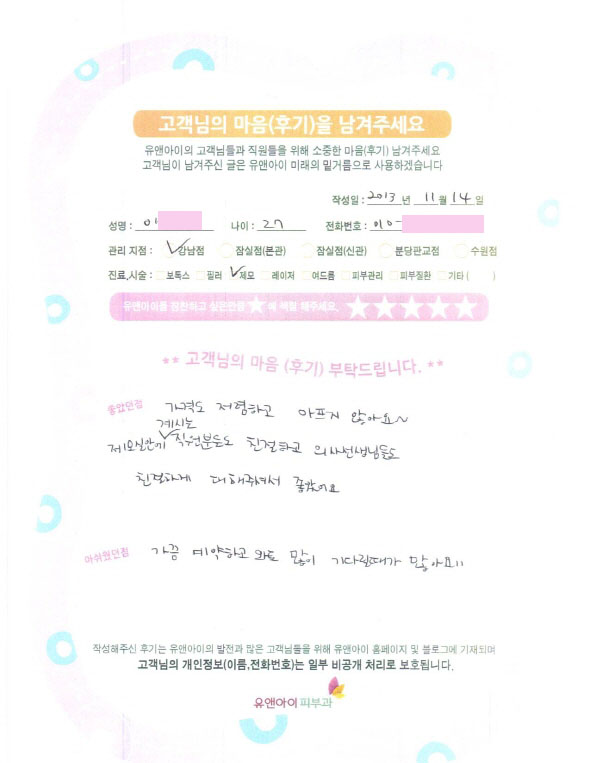 고객님의 마음(후기)을 남겨주세요
유앤아이의 고객님들과 직원들을 위해 소중한 마음(후기) 남겨주세요
고객님이 남겨주신 글은 유앤아이 미래의 밑거름으로 사용하겠습니다
작성일 : 2013 년 11 월 14 일
성명 : 이 나이 : 27 전화번호 : 010-
관리 지점 : ✓강남점 잠실점(본관) 잠실점(신관) 분당판교점 수원점
진료,시술 : 보톡스 필러 ✓제모 레이저 여드름 피부관리 피부질환 기타 ( )
유앤아이를 칭찬하고 싶은만큼 ★ 에 색칠 해주세요. ★★★★★
** 고객님의 마음 (후기) 부탁드립니다. **
좋았던점 가격도 저렴하고 아프지 않아요~
계시는
제모실안에 ✓직원분들도 친절하고 의사선생님들도
친절하게 대해주셔서 좋았어요
아쉬웠던점 가끔 예약하고 와도 많이 기다릴때가 많아요!!
작성해주신 후기는 유앤아이의 발전과 많은 고객님들을 위해 유앤아이 홈페이지 및 블로그에 기재되며
고객님의 개인정보(이름,전화번호)는 일부 비공개 처리로 보호됩니다.
유앤아이 피부과